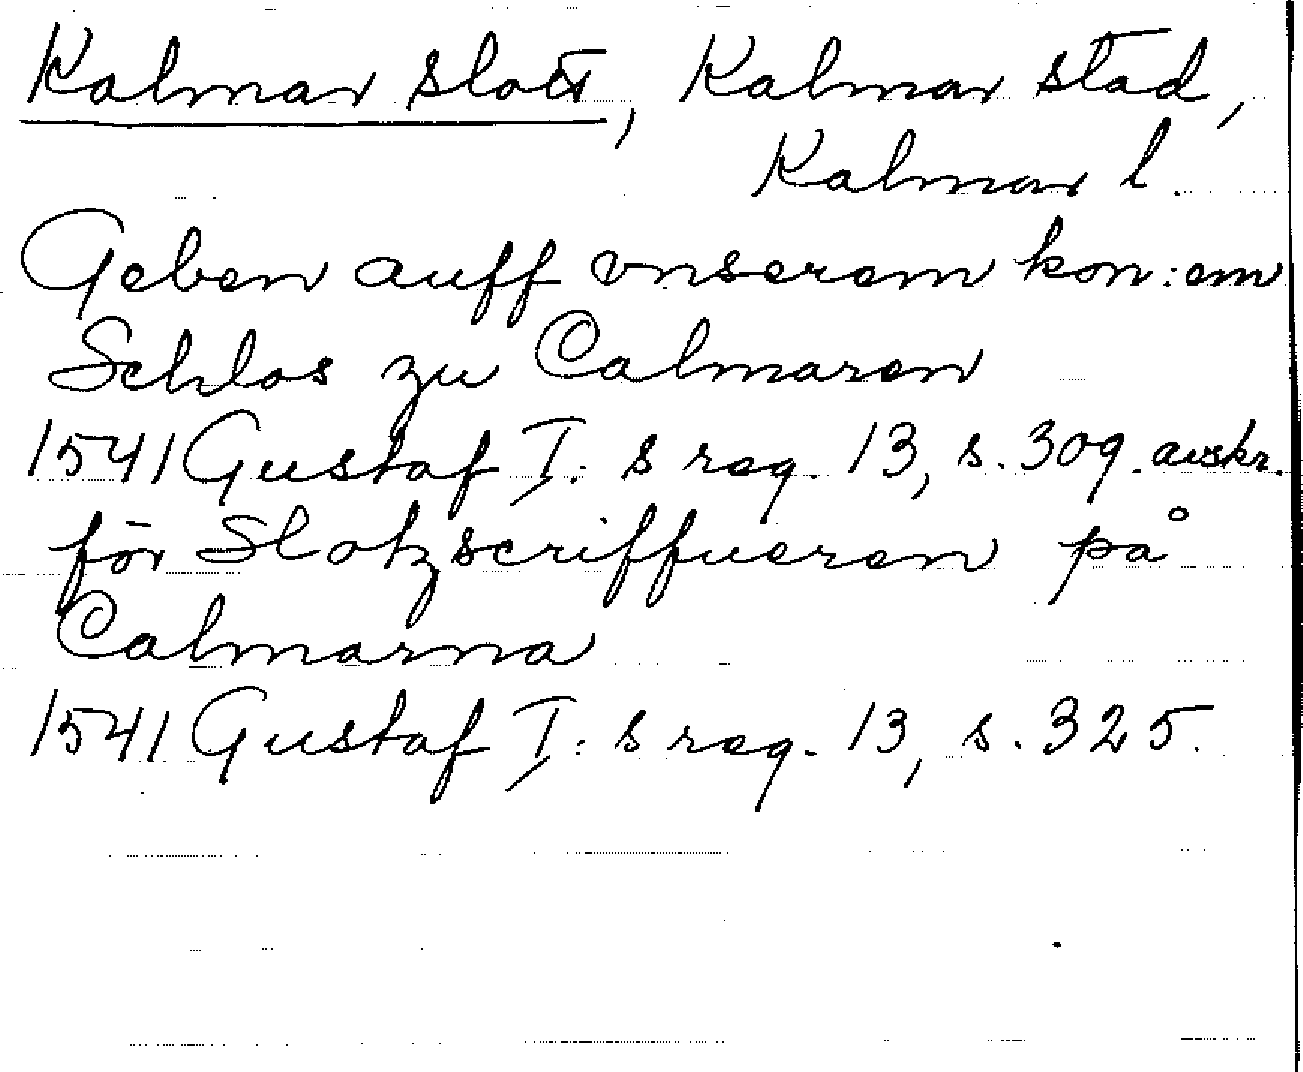 Kalmar slott, Kalmar stad,
Kalmar l.
Geben auff vnserem kon:em
Schlos zu Calmaren
1541 Gustaf I:s reg. 13, s. 309. avskr.
för Slotzscriffueren på
Calmarna
1541 Gustaf I:s reg. 13, s. 325.